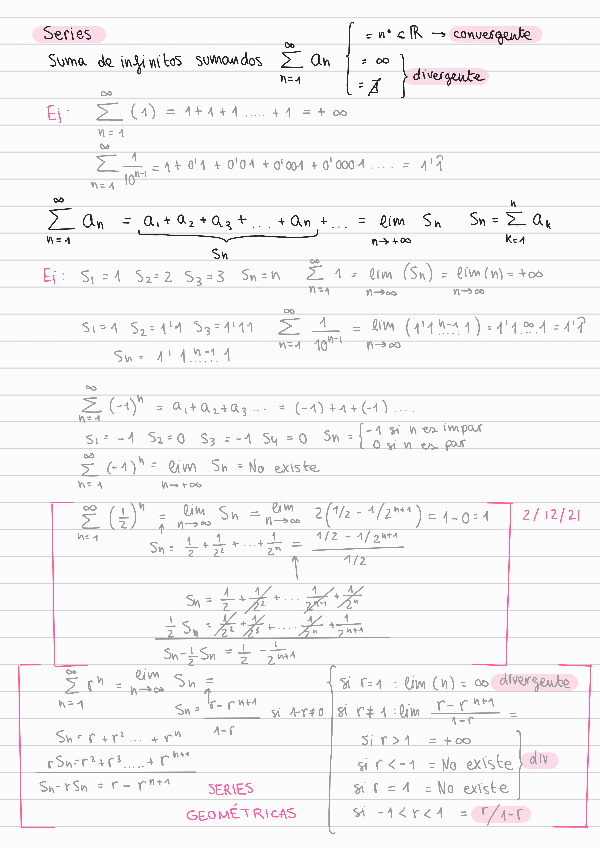 Series
Suma de infinitos sumandos ∑_{n=1}^{∞} an { = nº ∈ ℝ → convergente
= ∞
= ∄ } divergente
Ej: ∑_{n=1}^{∞} (1) = 1+1+1.....+1 = +∞
∑_{n=1}^{∞} 1/10^{n-1} = 1+0'1+0'01+0'001+0'0001.... = 1'1̂
∑_{n=1}^{∞} an = a₁+a₂+a₃+...+an+... = lim_{n→+∞} Sn Sn = ∑_{k=1}^{n} ak
Sn
Ej: S₁=1 S₂=2 S₃=3 Sn=n ∑_{n=1}^{∞} 1 = lim_{n→∞} (Sn) = lim_{n→∞} (n) = +∞
S₁=1 S₂=1'1 S₃=1'11 ∑_{n=1}^{∞} 1/10^{n-1} = lim_{n→∞} (1'1 n-1 1) = 1'1 ∞ 1 = 1'1̂
Sn = 1'1 n-1 1
∑_{n=1}^{∞} (-1)^n = a₁+a₂+a₃... = (-1)+1+(-1)....
S₁=-1 S₂=0 S₃=-1 S₄=0 Sn = { -1 si n es impar
0 si n es par
∑_{n=1}^{∞} (-1)^n = lim_{n→+∞} Sn = No existe
∑_{n=1}^{∞} (1/2)^n = lim_{n→∞} Sn = lim_{n→∞} 2(1/2 - 1/2^{n+1}) = 1-0=1
2/12/21
Sn = 1/2 + 1/2² + ... + 1/2^n = (1/2 - 1/2^{n+1}) / 1/2
Sn = 1/2 + 1/2² + ... 1/2^{n-1} + 1/2^n
1/2 Sn = 1/2² + 1/2³ + .... 1/2^n + 1/2^{n+1}
Sn - 1/2 Sn = 1/2 - 1/2^{n+1}
∑_{n=1}^{∞} r^n = lim_{n→∞} Sn =
Sn = (r - r^{n+1}) / (1-r) si 1-r≠0
Sn = r+r²...+r^n
rSn = r²+r³.....+r^{n+1}
Sn-rSn = r-r^{n+1}
SERIES
GEOMÉTRICAS
si r=1 : lim (n) = ∞ divergente
si r≠1 : lim (r - r^{n+1}) / (1-r) =
si r>1 = +∞
si r<-1 = No existe } div
si r=1 = No existe
si -1<r<1 = r/1-r